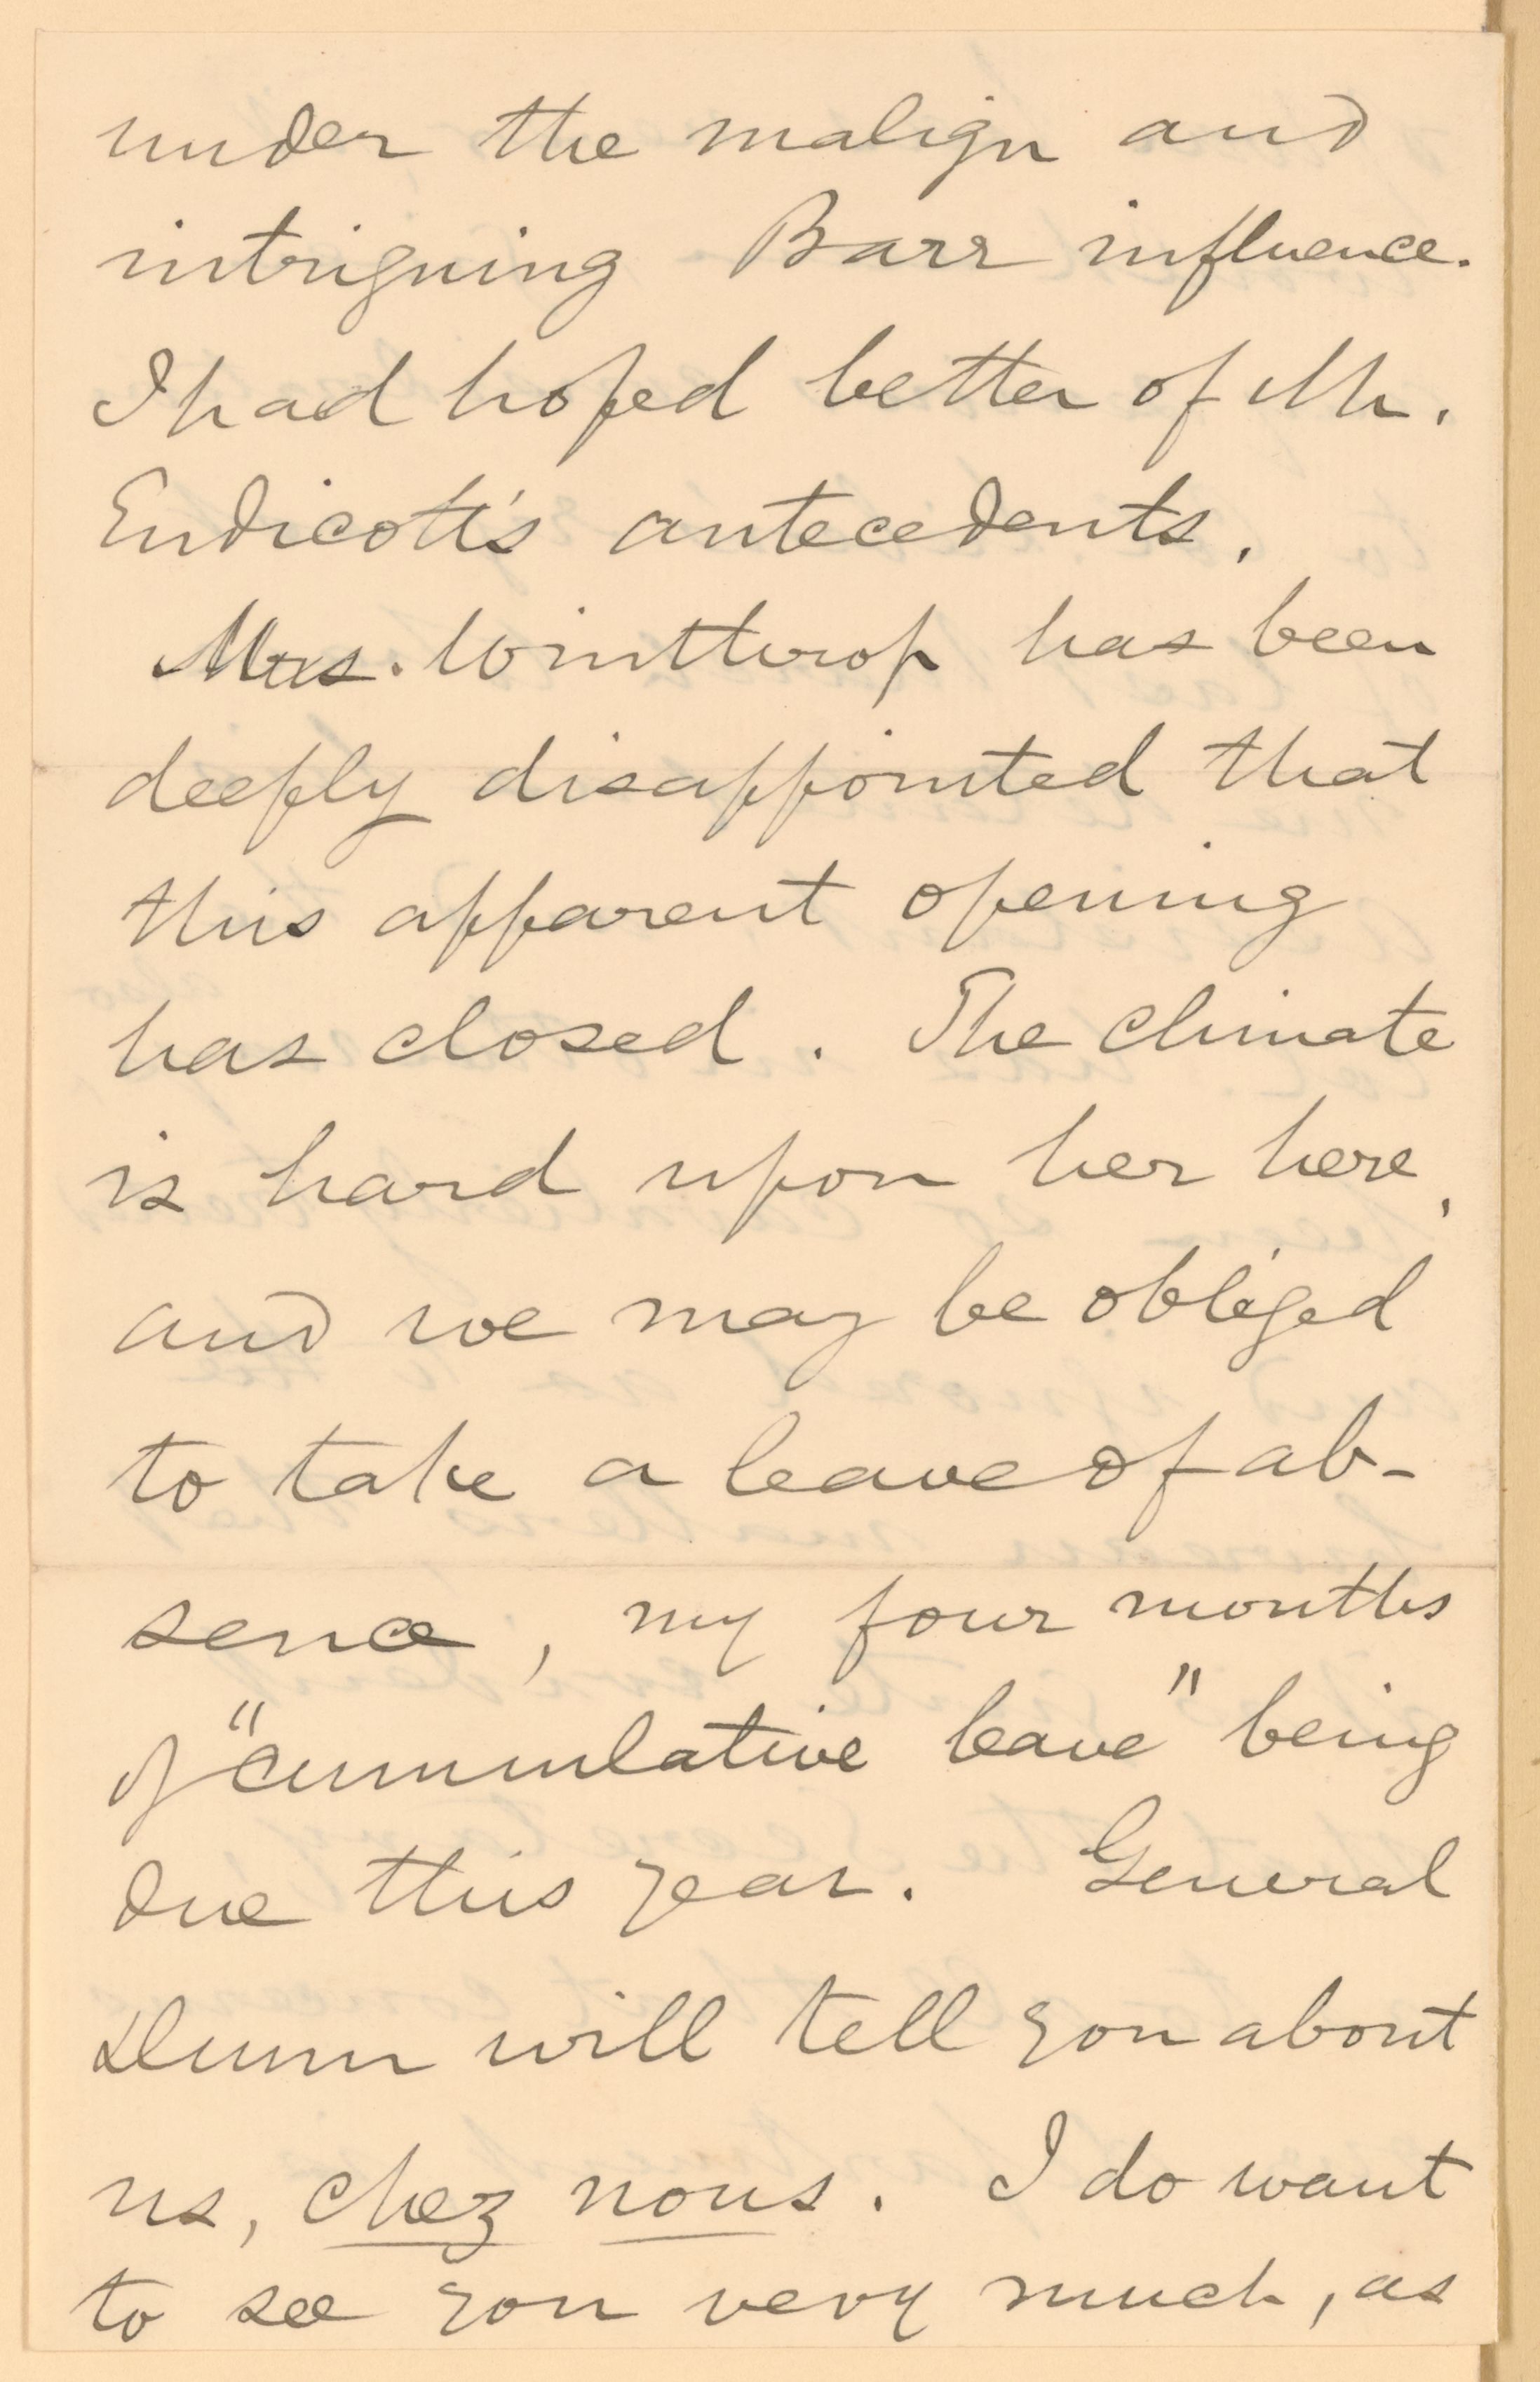 under the malign and
intriguing Barr influence.
I had hoped better of Mr.
Endicott's antecedents.
Mrs. Winthrop has been
deeply disappointed that
this apparent opening
has closed. The climate
is hard upon her here,
and we may be obliged
to take a leave of ab-
sence, my four months
of "cumulative leave" being
due this year. General
Dunn will tell you about
us, chez nous. I do want
to see you very much, as